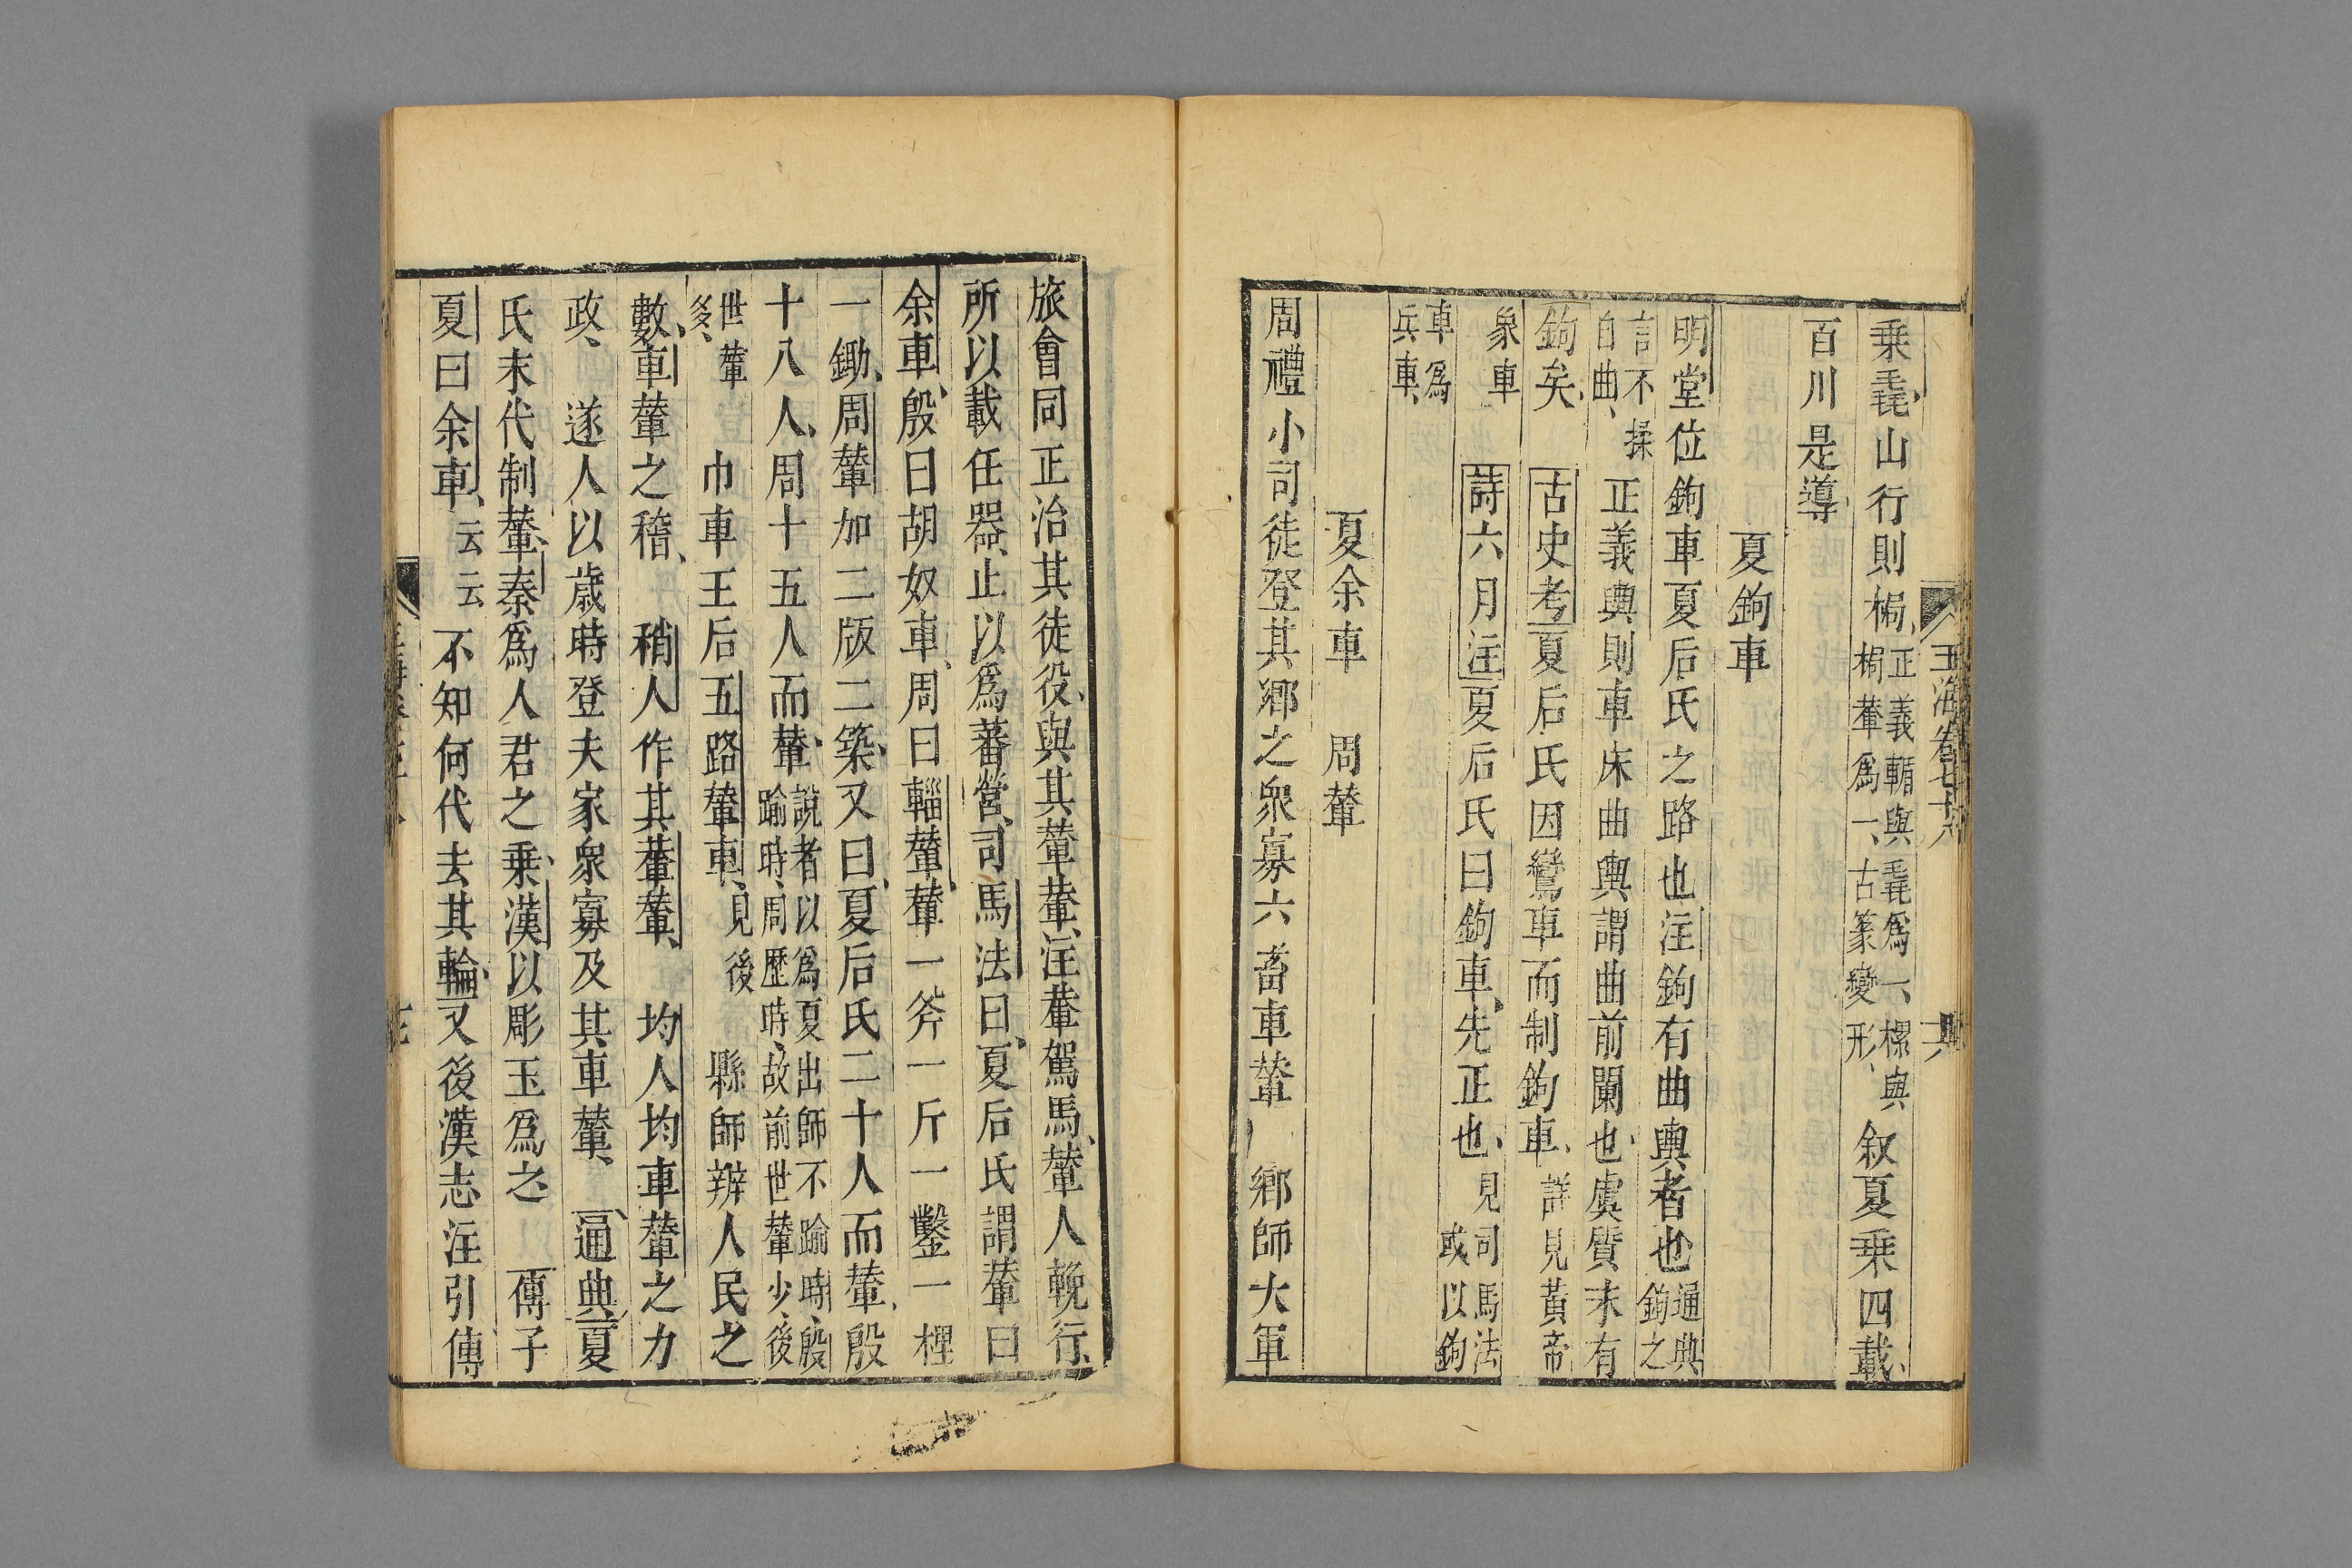 乗毳山行則梮正義輴與毳爲一樏與
梮輂爲一古篆變形叙夏乗四載
百川是導
夏鉤車
明堂位鉤車夏后氏之路也注鉤有曲輿者也通典
鉤之
言不揉
自曲正義輿則車床曲輿謂曲前闌也虞質未有
鉤矣古史考夏后氏因鸞車而制鉤車詳見黃帝
象車詩六月注夏后氏曰鉤車先正也見司馬法
或以鉤
車爲
兵車
夏余車 周輦
周禮小司徒登其鄉之衆寡六畜車輦 鄉師大軍
玉海卷七十八
旅會同正治其徒役與其輂輦注輂駕馬輦人輓行
所以載任器止以爲蕃營司馬法曰夏后氏謂輦曰
余車殷曰胡奴車周曰輜輦輦一斧一斤一鑿一梩
一鋤周輦加二版二築又曰夏后氏二十人而輦殷
十八人周十五人而輦說者以爲夏出師不踰時殷
踰時周歷時故前世輦少後
世輦
多巾車王后五路輦車見後 縣師辨人民之
數車輦之稽 稍人作其輂輦 均人均車輦之力
政 遂人以歲時登夫家衆寡及其車輦 通典夏
氏末代制輦秦爲人君之乗漢以彫玉爲之 傅子
夏曰余車云云不知何代去其輪又後漢志注引傅